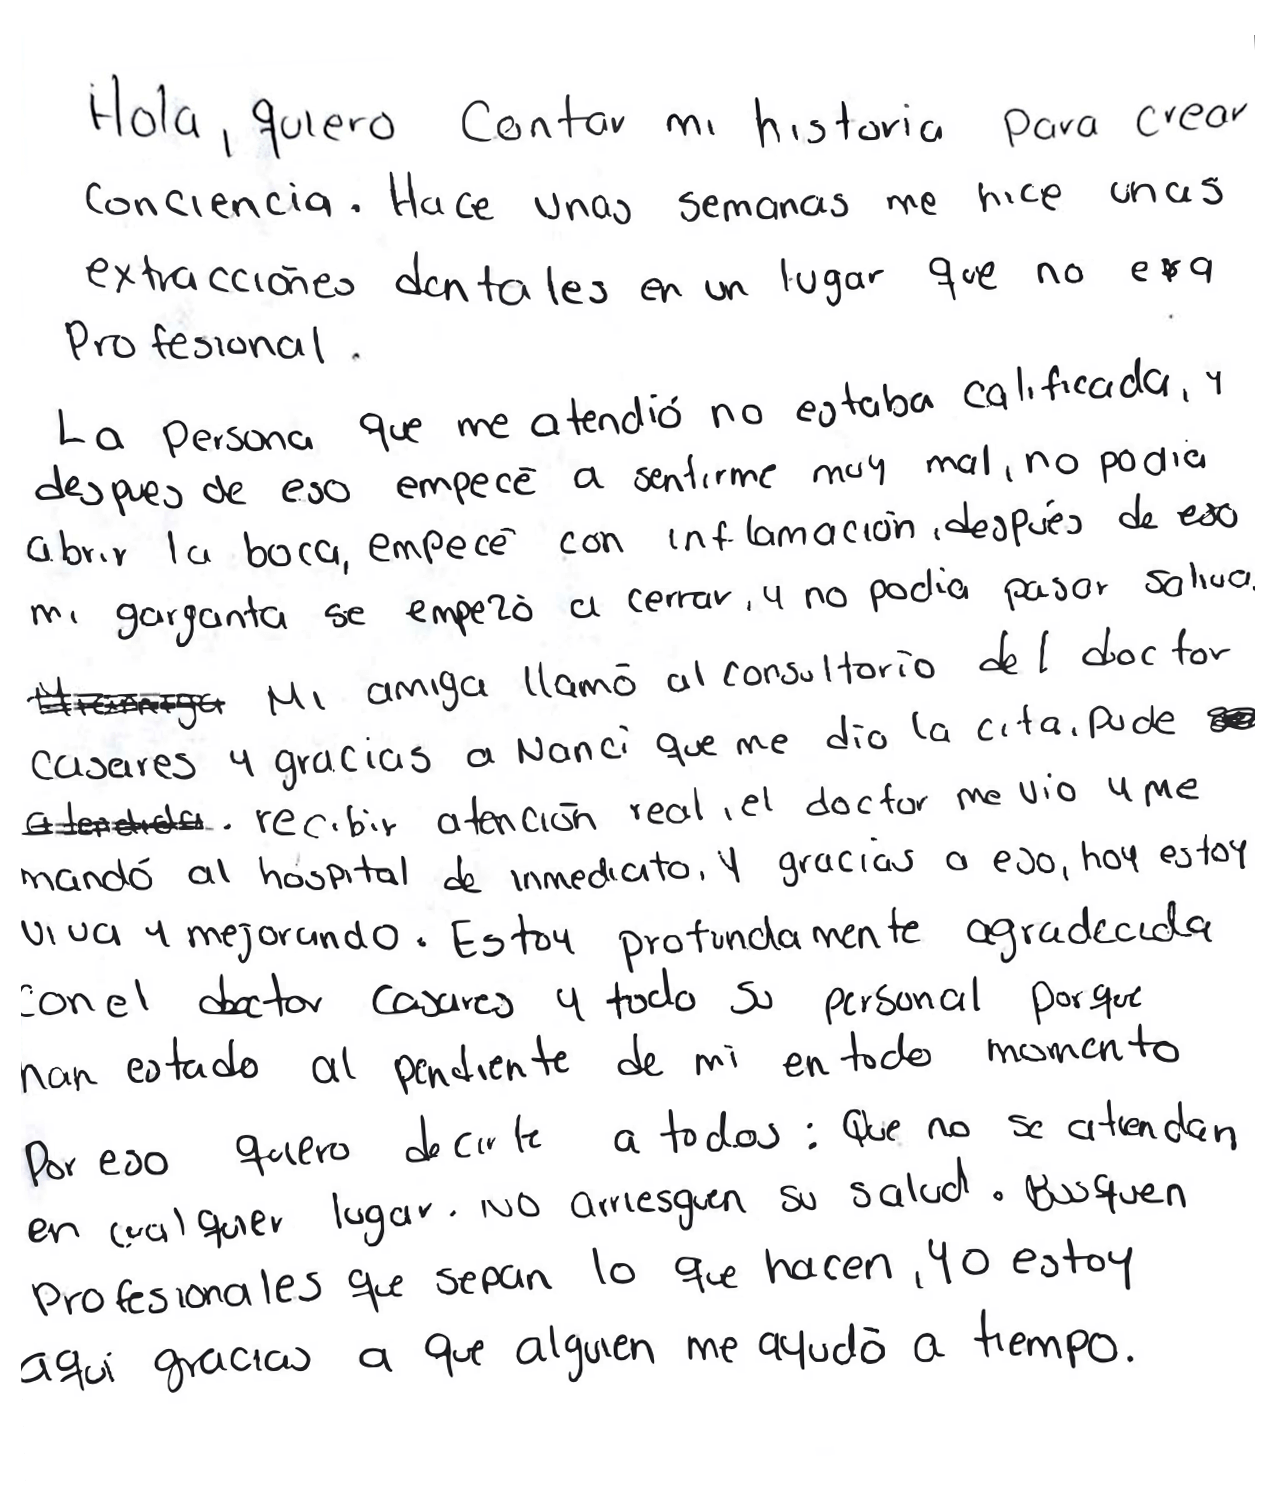 Hola, quiero contar mi historia para crear
conciencia. Hace unas semanas me hice unas
extracciónes dentales en un lugar que no era
Profesional.
La persona que me atendió no estaba calificada, y
despues de eso empecé a sentirme muy mal, no podia
abrir la boca, empecé con inflamación, después de eso
mi garganta se empezó a cerrar, y no podia pasar saliva.
Mi amiga llamó al consultorio del doctor
casares y gracias a Nanci que me dio la cita. Pude
recibir atención real, el doctor me vio y me
mandó al hospital de inmediato, y gracias a eso, hoy estoy
viva y mejorando. Estoy profundamente agradecida
con el doctor casares y todo su personal porque
han estado al pendiente de mi en todo momento
Por eso quiero decirle a todos: Que no se atiendan
en cualquier lugar. No arriesguen su salud. Busquen
Profesionales que sepan lo que hacen, yo estoy
aqui gracias a que alguien me ayudó a tiempo.